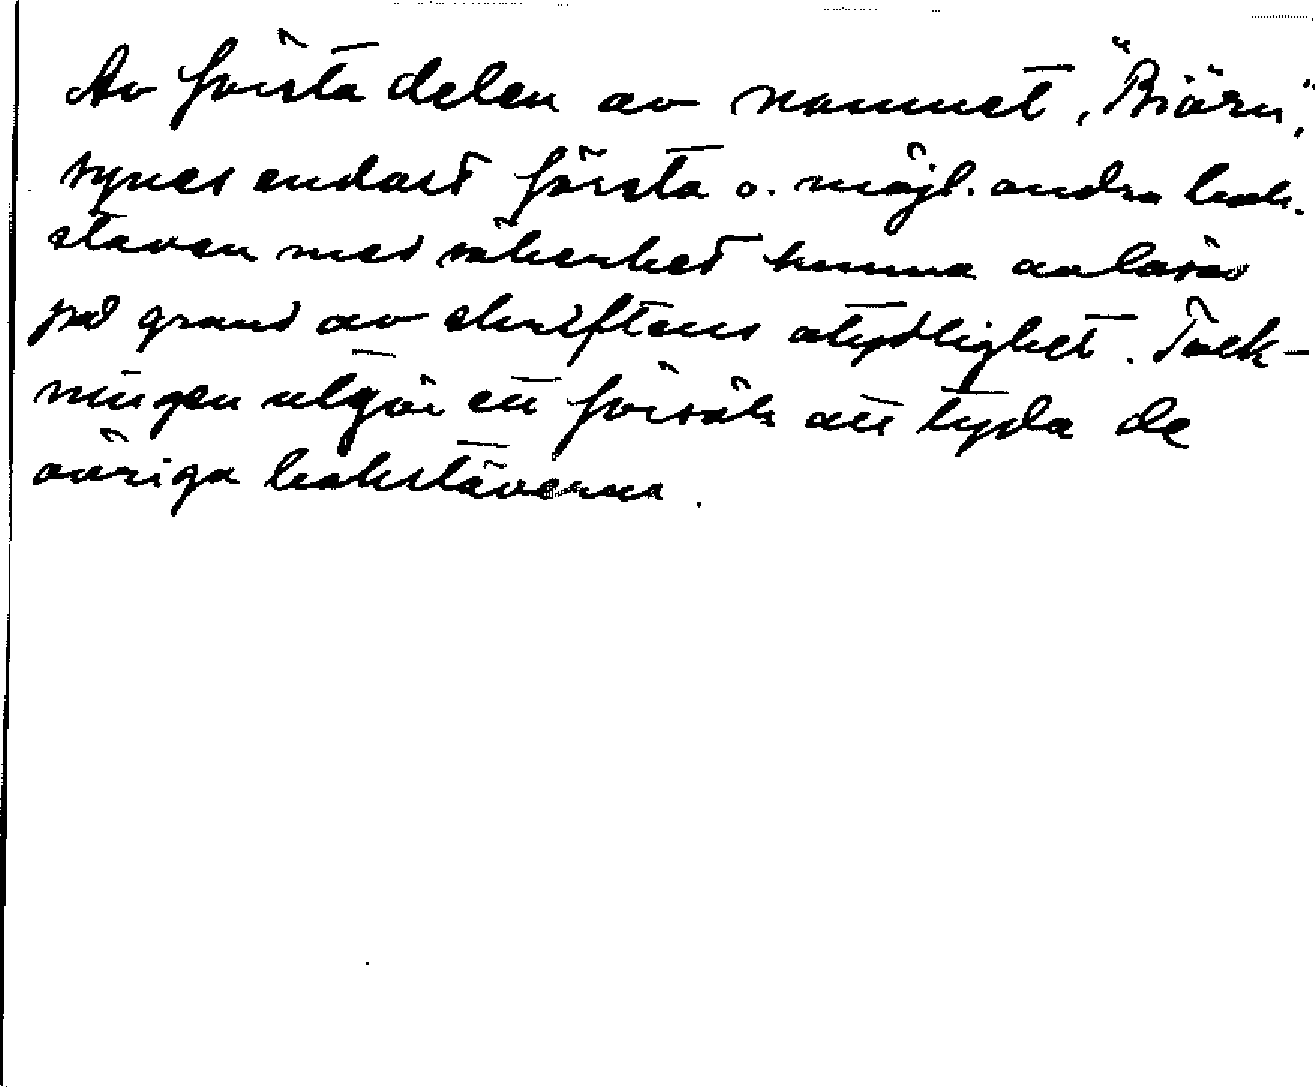 Av första delen av namnet, "Biörn",
synes endast första o. möjl. andra bok-
staven med säkerhet kunna avläsas
på grund av skriftens otydlighet. Tolk-
ningen utgör ett försök att tyda de
övriga bokstäverna.